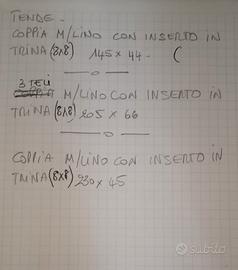 TENDE -
COPPIA M/LINO CON INSERTO IN
TRINA (8x8) 145 x 44 - (
3 TELI
COPPIA M/LINO CON INSERTO IN
TRINA (8x8) 205 x 66
COPPIA M/LINO CON INSERTO IN
TRINA (8x8) 230 x 45
subito